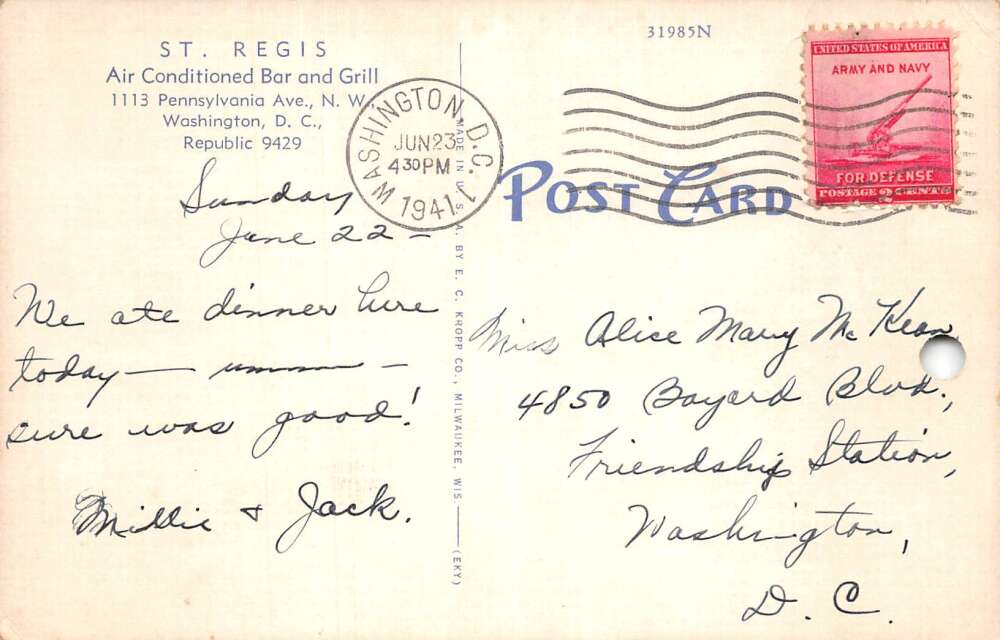 ST. REGIS
Air Conditioned Bar and Grill
1113 Pennsylvania Ave., N. W.,
Washington, D. C.,
Republic 9429
Sunday
June 22 –
We ate dinner here
today — ummm —
sure was good!
Millie & Jack.
MADE IN U. S. A. BY E. C. KROPP CO., MILWAUKEE, WIS. — (EKY)
31985N
WASHINGTON, D.C. 1
JUN 23
4 30 PM
1941
POST CARD
UNITED STATES OF AMERICA
ARMY AND NAVY
FOR DEFENSE
POSTAGE 2 CENTS
Miss Alice Mary McKean
4850 Bayard Blvd.,
Friendship Station,
Washington,
D. C.